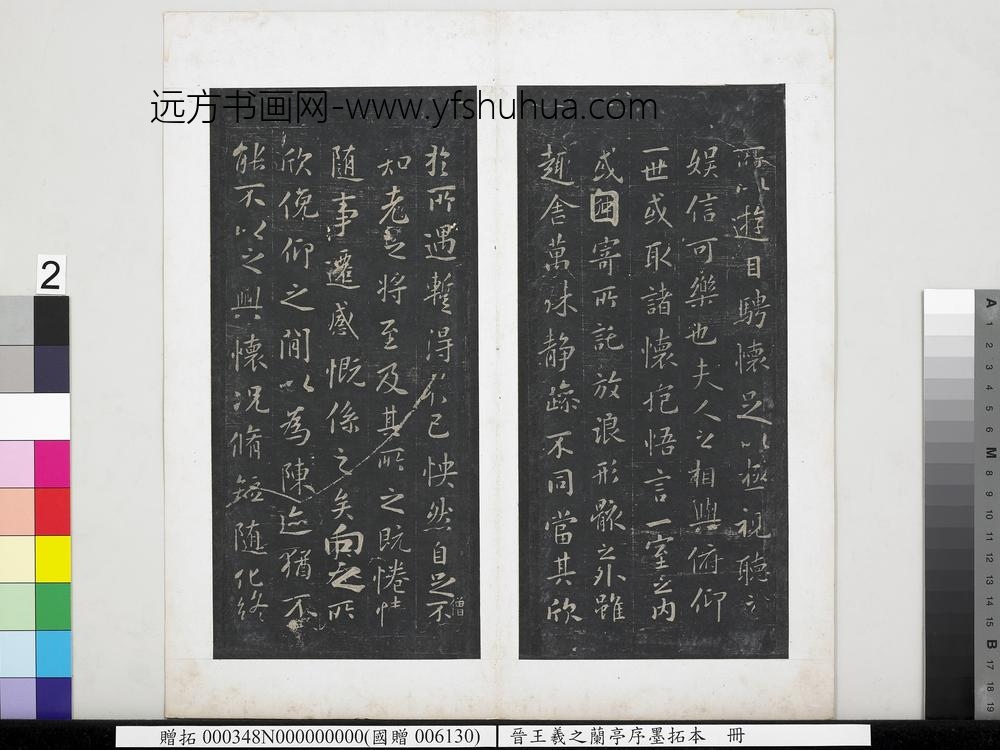 远方书画网-www.yfshuhua.com
所以遊目騁懷足以極視聽之
娛信可樂也夫人之相與俯仰
一世或取諸懷抱悟言一室之内
或因寄所託放浪形骸之外雖
趣舍萬殊静躁不同當其欣
於所遇暫得於己怏然自足不
僧
知老之將至及其所之既惓情
随事遷感慨係之矣向之所
欣俛仰之閒以為陳迹猶不
能不以之興懷況脩短随化終
2
A
1
2
3
4
5
6
M
8
9
10
11
12
13
14
15
B
17
18
19
贈拓 000348N000000000(國贈 006130)
晉王羲之蘭亭序墨拓本 冊